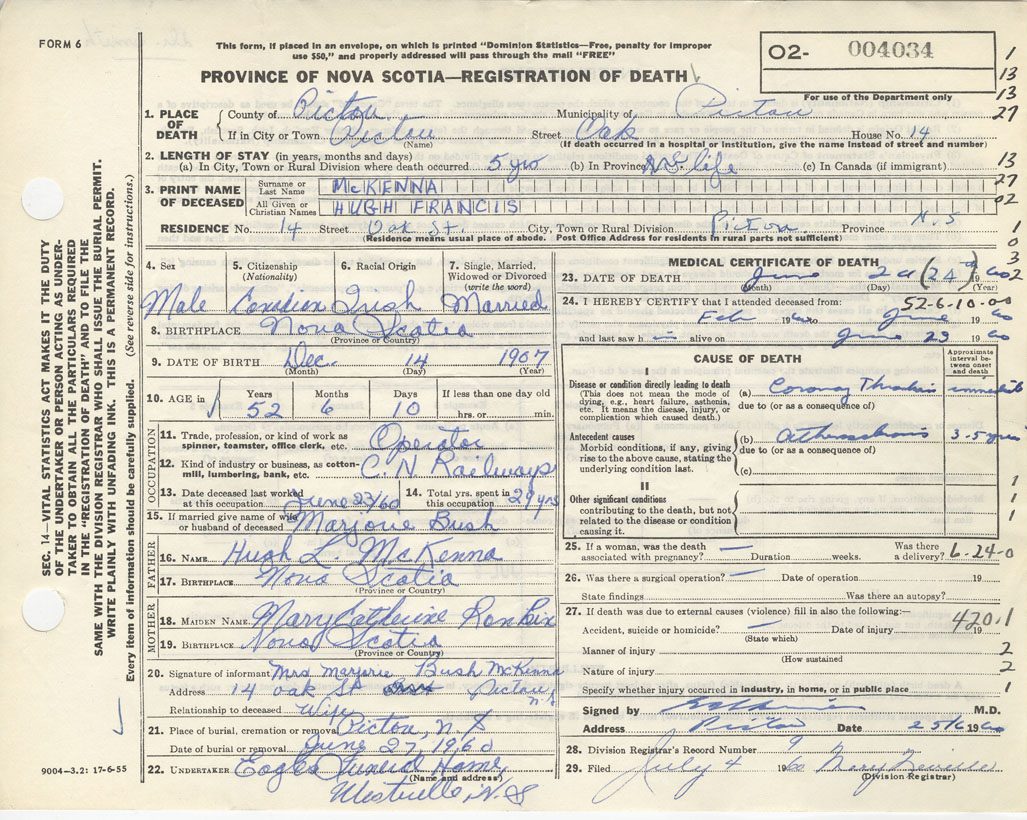 FORM 6
This form, if placed in an envelope, on which is printed "Dominion Statistics—Free, penalty for improper
use $50," and properly addressed will pass through the mail "FREE"
PROVINCE OF NOVA SCOTIA—REGISTRATION OF DEATH
O2- 004034
For use of the Department only
1
13
13
27
13
27
02
1
0
3
2
1. PLACE OF DEATH
County of Pictou Municipality of Pictou
If in City or Town Pictou Street Oak House No. 14
(Name) (If death occurred in a hospital or institution, give the name instead of street and number)
2. LENGTH OF STAY (in years, months and days)
(a) In City, Town or Rural Division where death occurred 5 yrs (b) In Province N.S. life (c) In Canada (if immigrant)
3. PRINT NAME OF DECEASED
Surname or Last Name McKENNA
All Given or Christian Names HUGH FRANCIS
RESIDENCE No. 14 Street Oak St. City, Town or Rural Division Pictou Province N.S
(Residence means usual place of abode. Post Office Address for residents in rural parts not sufficient)
4. Sex 5. Citizenship (Nationality) 6. Racial Origin 7. Single, Married, Widowed or Divorced (write the word)
Male Canadian Irish Married
8. BIRTHPLACE Nova Scotia
(Province or Country)
9. DATE OF BIRTH Dec. 14 1907
(Month) (Day) (Year)
10. AGE in Years Months Days If less than one day old
52 6 10 hrs. or min.
OCCUPATION
11. Trade, profession, or kind of work as spinner, teamster, office clerk, etc. Operator
12. Kind of industry or business, as cotton-mill, lumbering, bank, etc. C. N. Railways
13. Date deceased last worked at this occupation June 23/60 14. Total yrs. spent in this occupation 39 yrs
15. If married give name of wife or husband of deceased Marjorie Bush
FATHER
16. NAME Hugh L. McKenna
17. BIRTHPLACE Nova Scotia
(Province or Country)
MOTHER
18. MAIDEN NAME Mary Catherine
19. BIRTHPLACE Nova Scotia
(Province or Country)
20. Signature of informant Mrs Marjorie Bush McKenna
Address 14 Oak St Pictou, N.S
Relationship to deceased Wife
21. Place of burial, cremation or removal Pictou, N.S
Date of burial or removal June 27, 1960
22. UNDERTAKER Eagles Funeral Home,
(Name and address)
Westville, N.S
MEDICAL CERTIFICATE OF DEATH
23. DATE OF DEATH June 24 (24th) 1960
(Month) (Day) (Year)
24. I HEREBY CERTIFY that I attended deceased from: 52-6-10-00
Feb 1960 to June 1960
and last saw him alive on June 23 1960
CAUSE OF DEATH
Approximate interval between onset and death
I
Disease or condition directly leading to death
(This does not mean the mode of dying, e.g., heart failure, asthenia, etc. It means the disease, injury, or complication which caused death.)
(a) Coronary Thrombosis immediate
due to (or as a consequence of)
Antecedent causes
Morbid conditions, if any, giving rise to the above cause, stating the underlying condition last.
(b) Atherosclerosis 3-5 years
due to (or as a consequence of)
(c)
II
Other significant conditions contributing to the death, but not related to the disease or condition causing it.
1
1
1
25. If a woman, was the death associated with pregnancy? — Duration weeks. Was there a delivery? 6-24-0
26. Was there a surgical operation? — Date of operation 19
State findings Was there an autopsy?
27. If death was due to external causes (violence) fill in also the following:—
Accident, suicide or homicide? — Date of injury 19 420.1
(State which)
Manner of injury 2
(How sustained
Nature of injury 2
Specify whether injury occurred in industry, in home, or in public place 1
Signed by M.D.
Address Pictou Date 25/6 1960
28. Division Registrar's Record Number 9
29. Filed July 4 1960 Mary
(Division Registrar)
SEC. 14—VITAL STATISTICS ACT MAKES IT THE DUTY
OF THE UNDERTAKER OR PERSON ACTING AS UNDER-
TAKER TO OBTAIN ALL THE PARTICULARS REQUIRED
IN THE "REGISTRATION OF DEATH" AND TO FILE THE
SAME WITH THE DIVISION REGISTRAR WHO SHALL ISSUE THE BURIAL PERMIT.
WRITE PLAINLY WITH UNFADING INK. THIS IS A PERMANENT RECORD.
Every item of information should be carefully supplied. (See reverse side for instructions.)
9004-3.2: 17-6-55